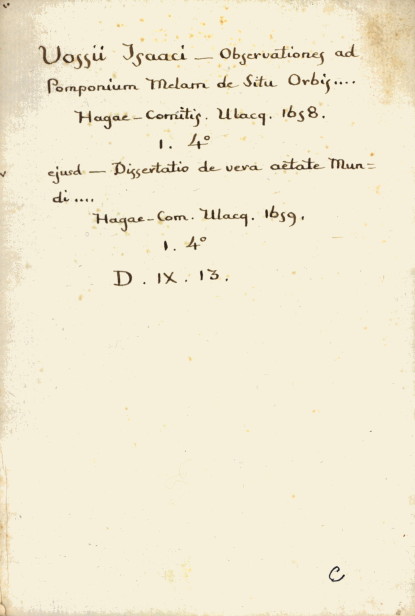 Vossii Isaaci — Observationes ad
Pomponium Melam de Situ Orbis....
Hagae-Comitis. Ulacq. 1658.
1. 4°
ejusd — Dissertatio de vera aetate Mun=
di....
Hagae-Com. Ulacq. 1659.
1. 4°
D. IX. 13.
C